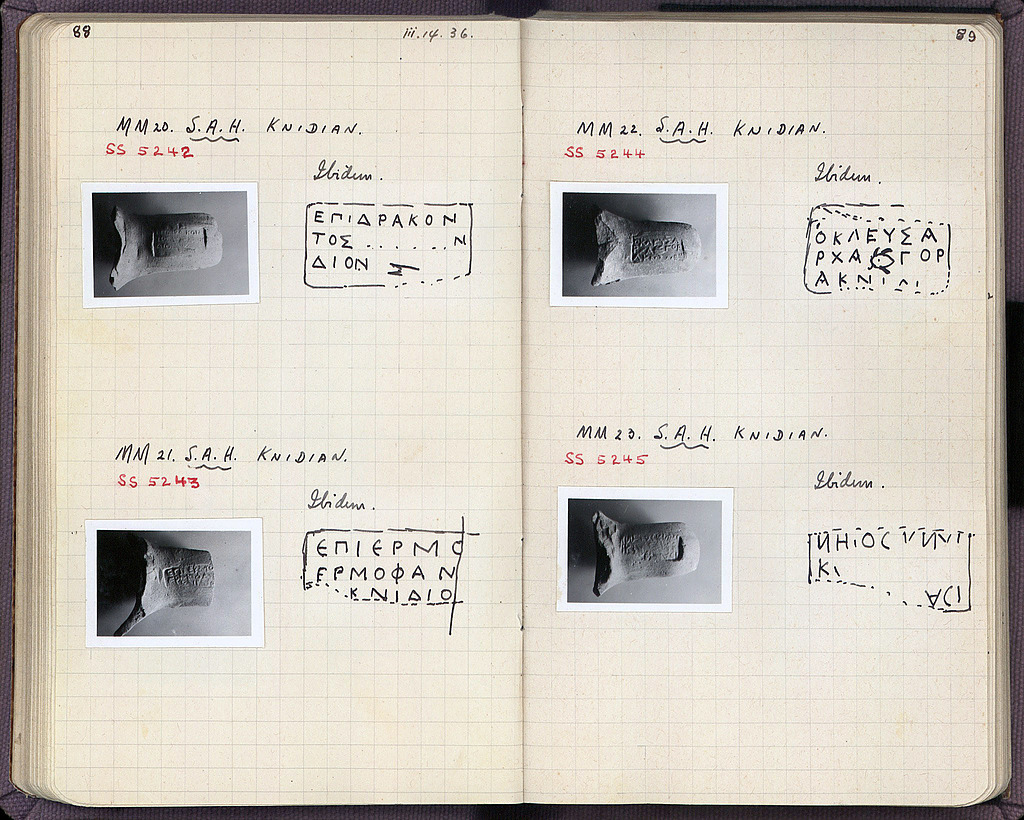 88
iii.14.36.
MM20. S.A.H. KNIDIAN.
SS 5242
Ibidem.
ΕΠΙΔΡΑΚΟΝ
ΤΟΣ . . . . . . Ν
ΔΙΟΝ
MM21. S.A.H. KNIDIAN.
SS 5243
Ibidem.
ΕΠΙΕΡΜΟ
ΕΡΜΟΦΑΝ
ΚΝΙΔΙΟ
89
MM22. S.A.H. KNIDIAN.
SS 5244
Ibidem.
ΟΚΛΕΥΣΑ
ΡΧΑ ΓΟΡ
ΑΚΝΙΔΙ
MM23. S.A.H. KNIDIAN.
SS 5245
Ibidem.